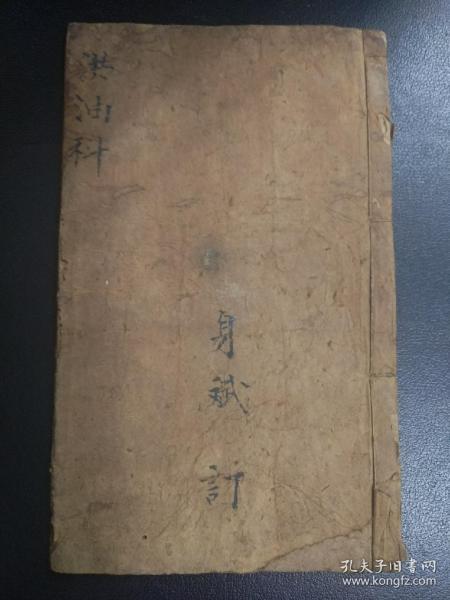 洪油科
身斌訂
孔夫子旧书网
www.kongfz.com